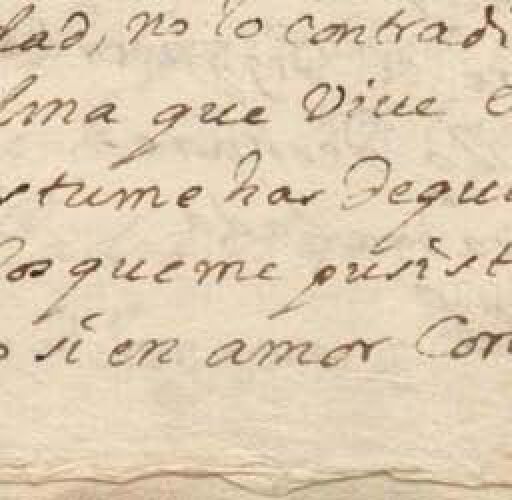 dad, no lo contradi
lma que Viue e
stu me has de qui
los queme pusist
o si en amor Con